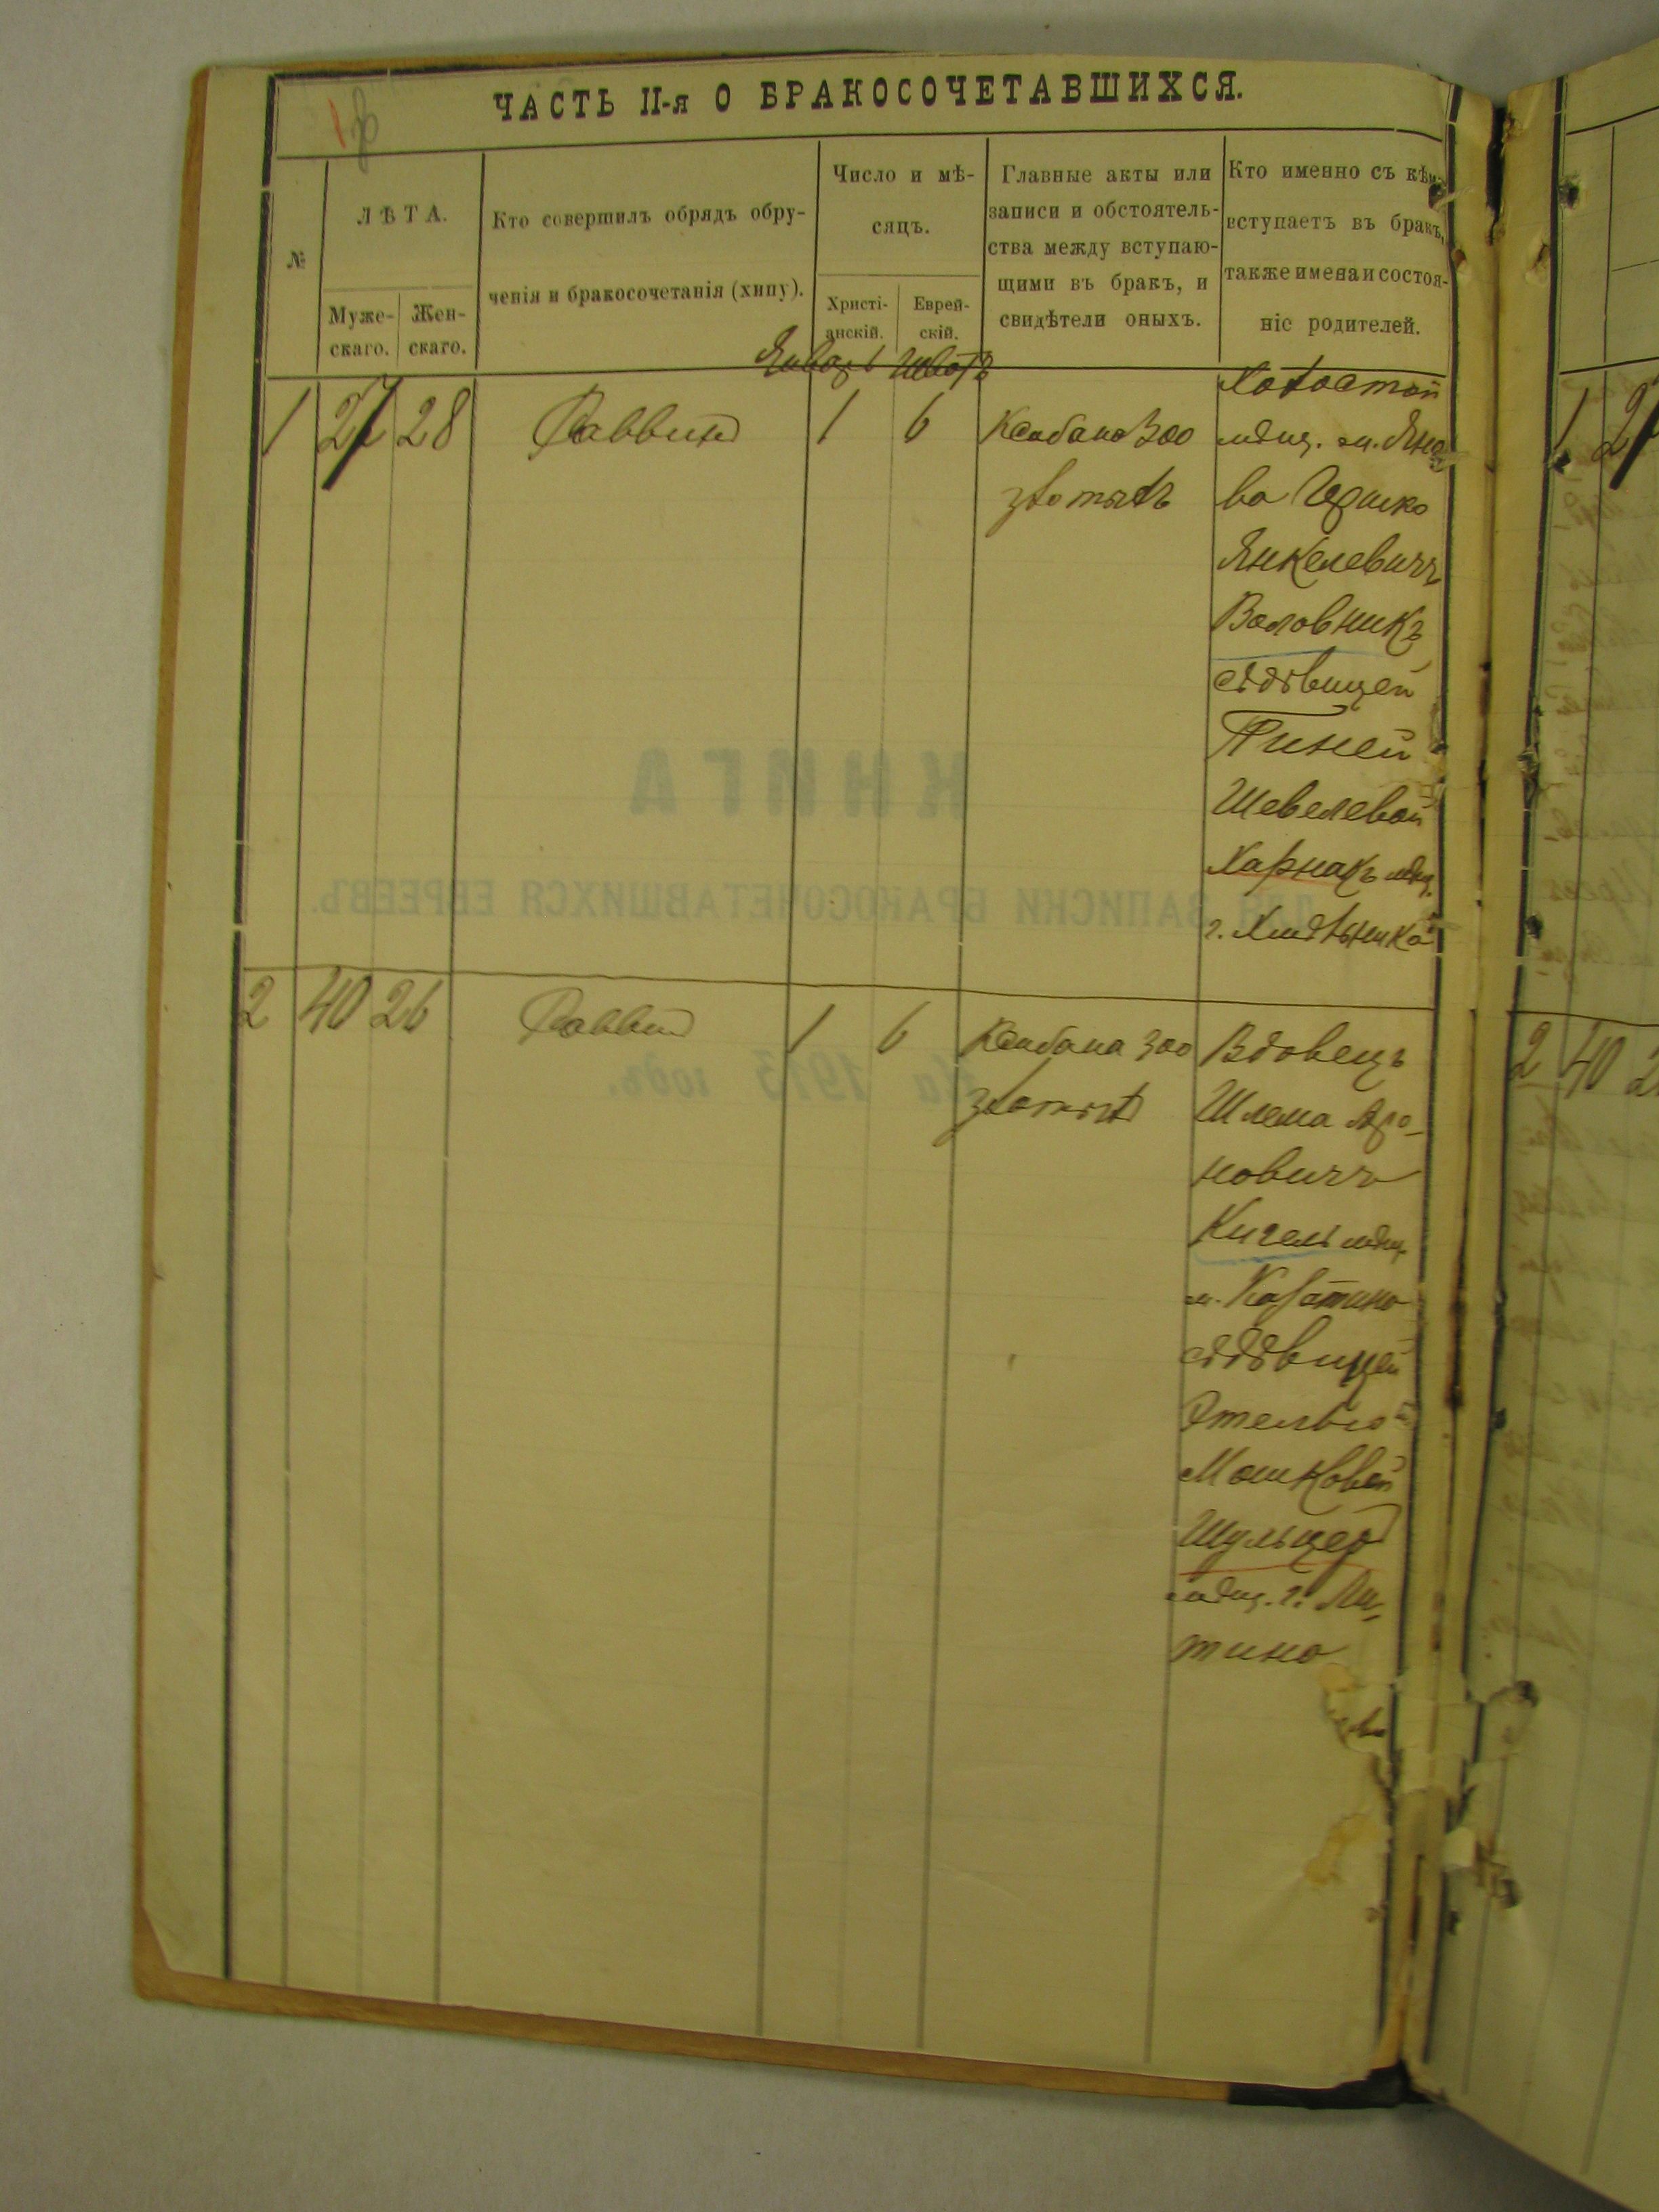 ЧАСТЬ II-я О БРАКОСОЧЕТАВШИХСЯ.
№
ЛѢТА.
Муже-
скаго.
Жен-
скаго.
Кто совершилъ обрядъ обру-
ченія и бракосочетанія (хипу).
Число и мѣ-
сяцъ.
Христі-
анскій.
Еврей-
скій.
Главные акты или
записи и обстоятель-
ства между вступаю-
щими въ бракъ, и
свидѣтели оныхъ.
Кто именно съ кѣмъ
вступаетъ въ бракъ,
также имена и состоя-
ніе родителей.
Январь Шватъ
1 27 28 Раввинъ 1 6
300
злотыхъ
Холостой
мѣщ. м. Яно
ва Ицько
Янкелевичъ
Воловникъ
съ дѣвицей
Шевелевой
Харнакъ мѣщ.
г. Хмѣльника
2 40 26 Раввин 1 6
300
злотых
Вдовецъ
Шлема Аро-
новичъ
Кигель мѣщ.
съ дѣвицей
Этелью
Мошковой
Шульцер
мѣщ. г. Ли-
тина
КНИГА
ДЛЯ ЗАПИСКИ БРАКОСОЧЕТАВШИХСЯ ЕВРЕЕВЪ.
На 1913 годъ.
1 2
2 40 2